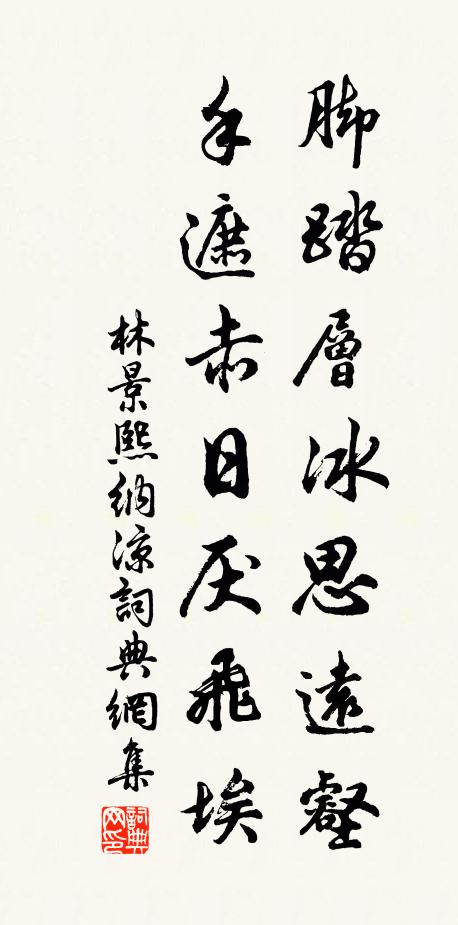 脚踏層冰思遠壑
手遮赤日厌飛埃
林景熙纳凉詞典網集
詞典网印